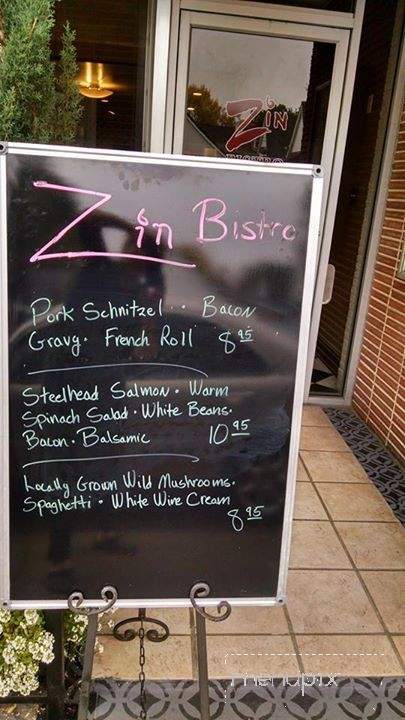 Zin
BISTRO
Zin Bistro
Pork Schnitzel · Bacon
Gravy · French Roll 8 95
Steelhead Salmon · Warm
Spinach Salad · White Beans ·
Bacon · Balsamic 10 95
Locally Grown Wild Mushrooms ·
Spaghetti · White Wine Cream
8 95
menupix